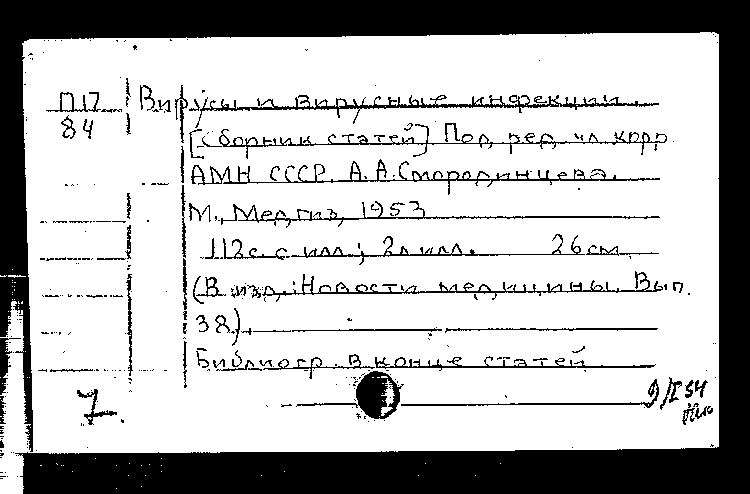 П17 Вирусы и вирусные инфекции.
84
[Сборник статей] Под ред. чл. корр.
АМН СССР А.А. Смородинцева.
М., Медгиз, 1953
112 с. с илл.; 2 л илл. 26 см
(В изд.: Новости медицины. Вып.
38).
Библиогр. в конце статей
7.
9/I 54